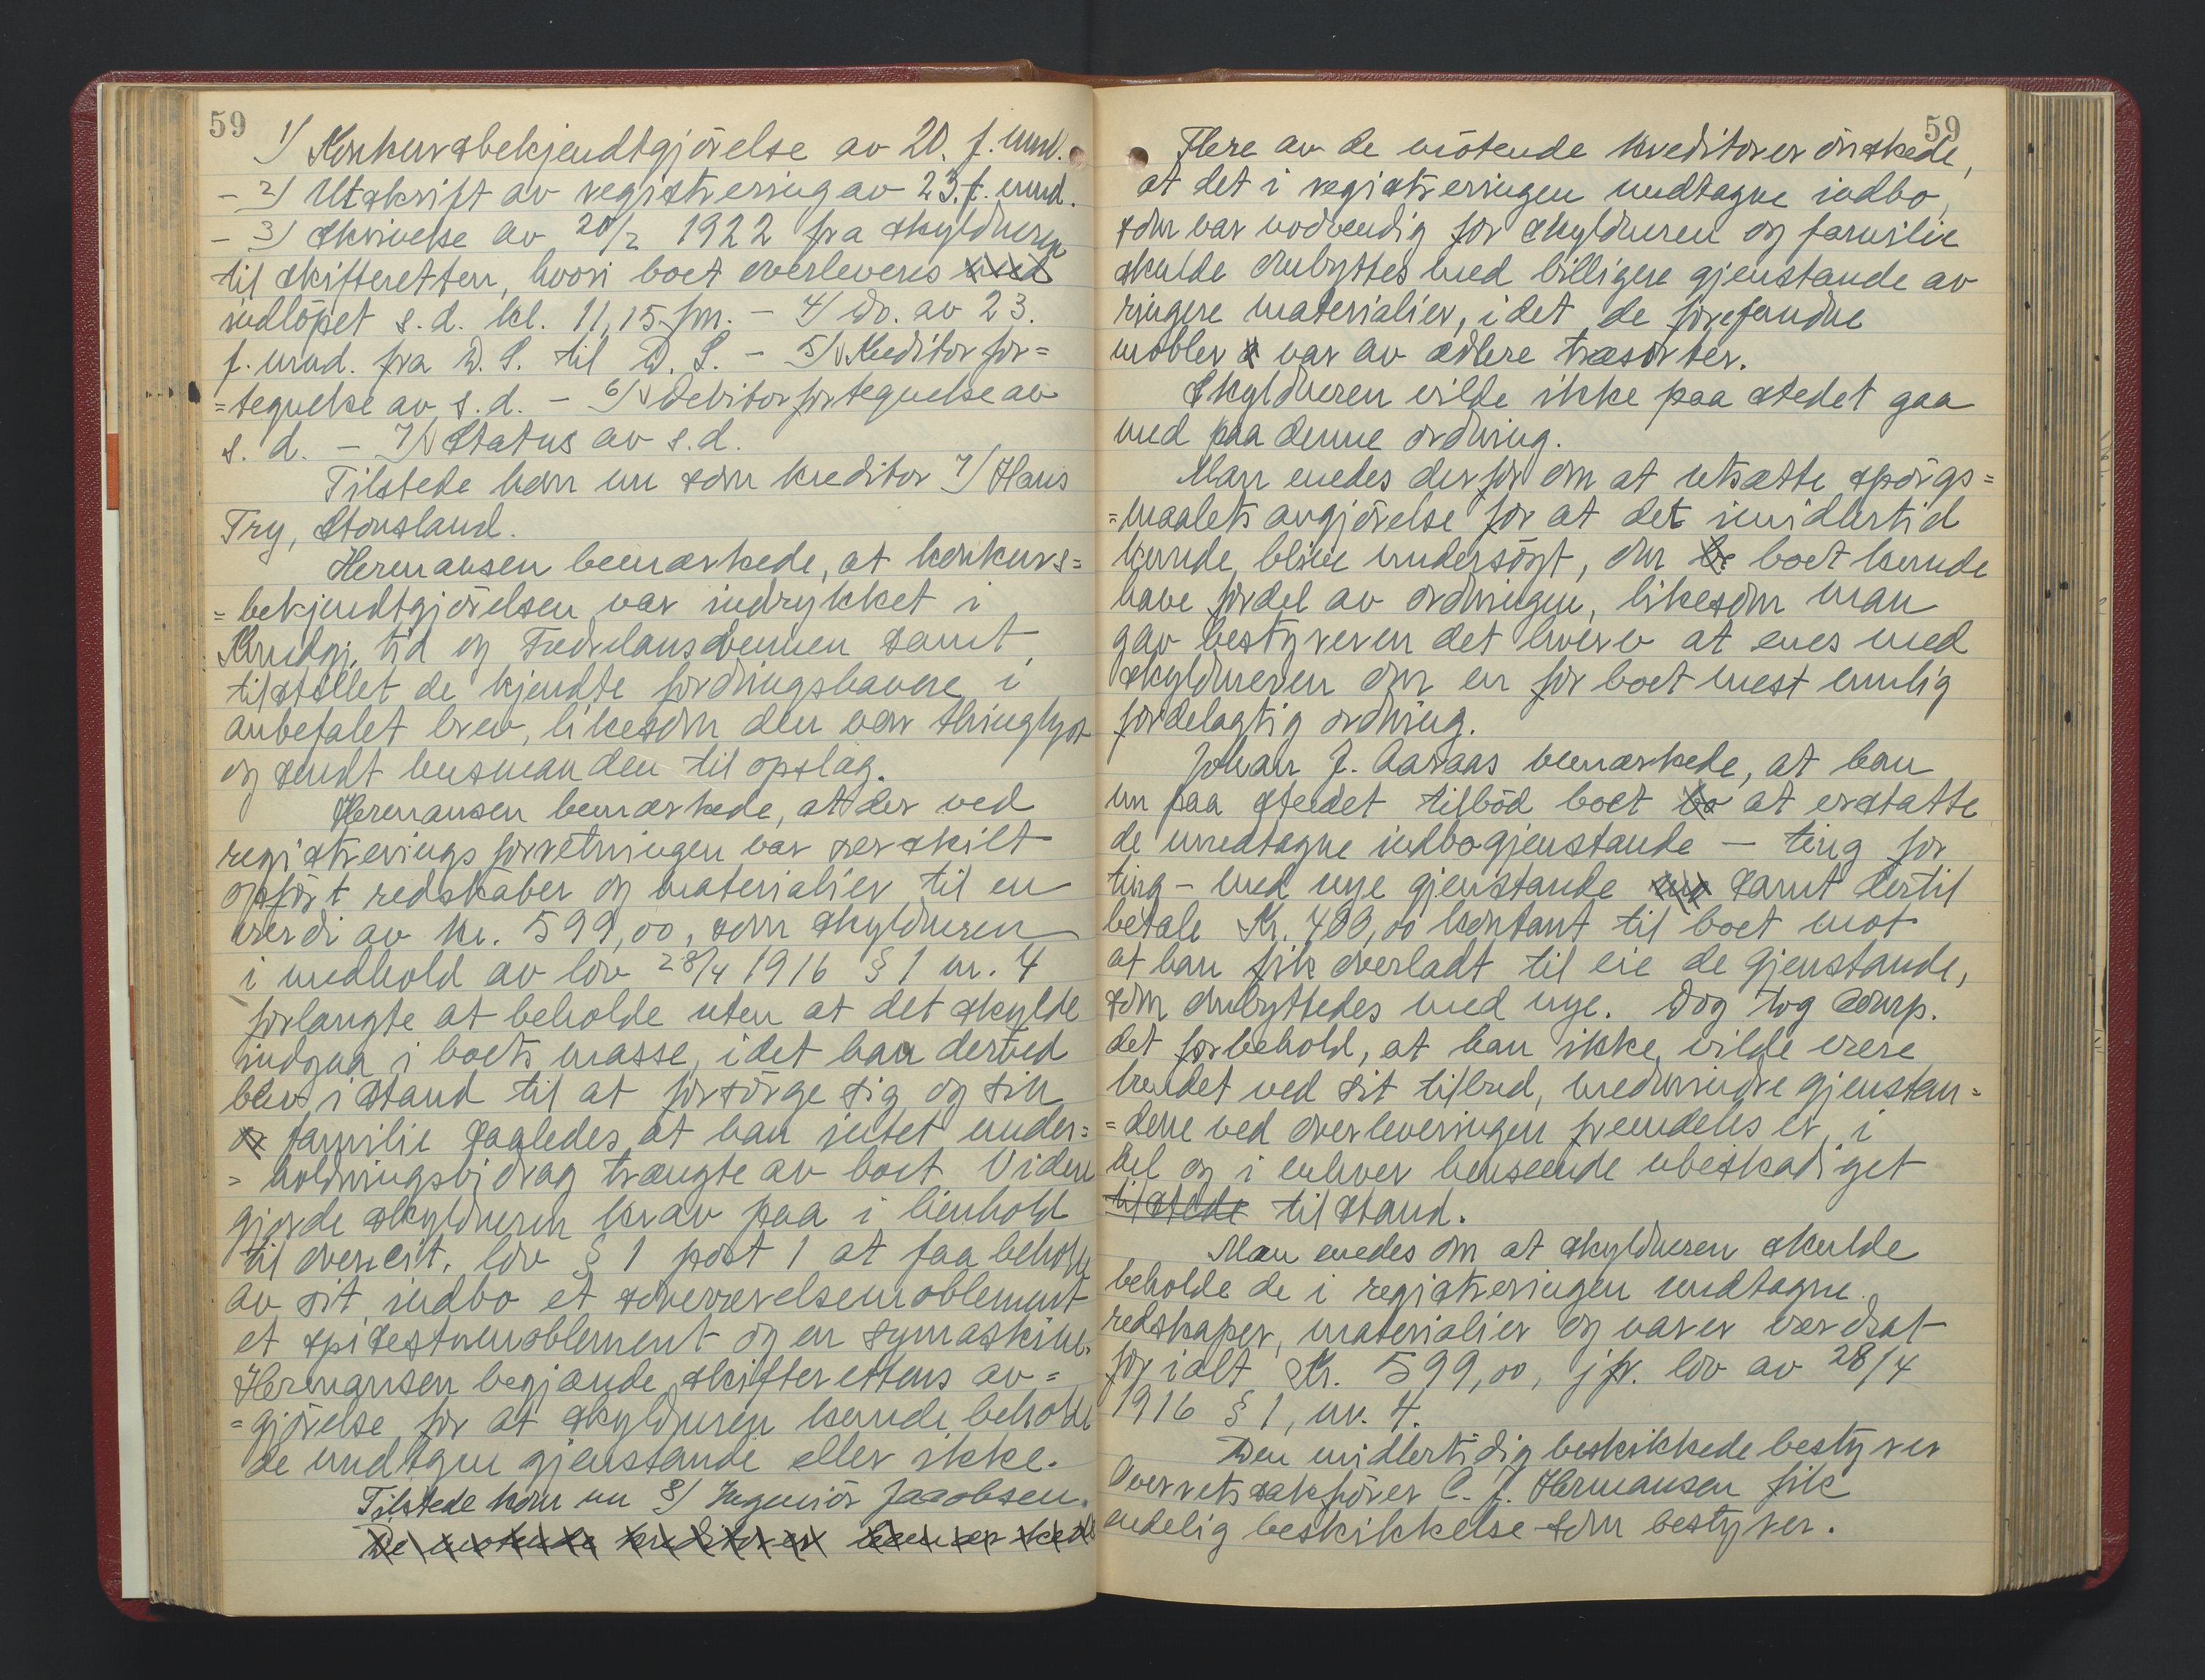 59
1) Konkursbekjendtgjörelse av 20. f. mnd.
- 2) Utskrift av registrering av 23. f. mnd.
- 3) Skrivelse av 20/2 1922 fra skyldneren
til skifteretten, hvori boet overleveres med
indlöpet s. d. kl. 11,15 fm. - 4) Do. av 23.
f. mnd. fra D. S. til D. S. - 5) Kreditorfor=
=tegnelse av s. d. - 6) Debitorfortegnelse av
s. d. - 7) Status av s. d.
Tilstede kom nu som kreditor 7) Hans
Try, Stonsland.
Hermansen bemærkede, at konkurs=
=bekjendtgjörelsen var indrykket i
Kundgj. tid og Fædrelandsvennen samt
tilstillet de kjendte fordringshavere i
anbefalet brev, likesom den var thinglyst
og sendt lensmanden til opslag.
Hermansen bemærkede, at der ved
registreringsforretningen var særskilt
opført redskaber og materialier til en
værdi av kr. 599,00, som skyldneren
i medhold av lov 28/4 1916 § 1 nr. 4
forlangte at beholde uten at det skylde
indgaa i boets masse, idet han derved
blev i stand til at forsörge sig og sin
og familie saaledes at han intet under=
=holdningsbidrag trængte av boet. Videre
gjorde skyldneren krav paa i henhold
til ovencit. lov § 1 post 1 at faa beholde
av sit indbo et soveværelsemøblement
et spisestuemøblement og en symaskine.
Hermansen begjærede skifterettens av=
=gjörelse for at skyldneren kunde beholde
de undtagne gjenstande eller ikke.
Tilstede kom nu 8) Ingeniör Jacobsen.
De møtende kreditorer bemerkede
59
Flere av de mötende kreditorer önskede,
at det i registreringen undtagne indbo,
som var nodvendig for skyldneren og familie
skulde ombyttes med billigere gjenstande av
ringere materialier, idet de forefundne
mobler var av ædlere træsorter.
Skyldneren vilde ikke paa stedet gaa
med paa denne ordning.
Man enedes derfor om at utsætte spörgs=
=maalets avgjörelse for at det imidlertid
kunde blive undersögt, om be boet kunde
have fordel av ordningen, likesom man
gav bestyreren det hverv at enes med
skyldneren om en for boet mest mulig
fordelagtig ordning.
Johan J. Aaraas bemærkede, at han
nu paa stedet tilböd boet bo at erstatte
de undtagne indbogjenstande - ting for
ting - med nye gjenstande samt dertil
betale Kr. 400,00 kontant til boet mot
at han fik overladt til eie de gjenstande,
som ombyttedes med nye. Dog tog comp.
det forbehold, at han ikke vilde være
bundet ved sit tilbud, medmindre gjenstan=
=dene ved overleveringen fremdeles er i
hel og i enhver henseende ubeskadiget
tilstede tilstand.
Man enedes om at skyldneren skulde
beholde de i registreringen undtagne
redskaper, materialier og varer værdsat
for ialt Kr. 599,00, jfr. lov av 28/4
1916 § 1, nr. 4.
Den midlertidig beskikkede bestyrer
Overretssakförer C. J. Hermansen fik
endelig beskikkelse som bestyrer.